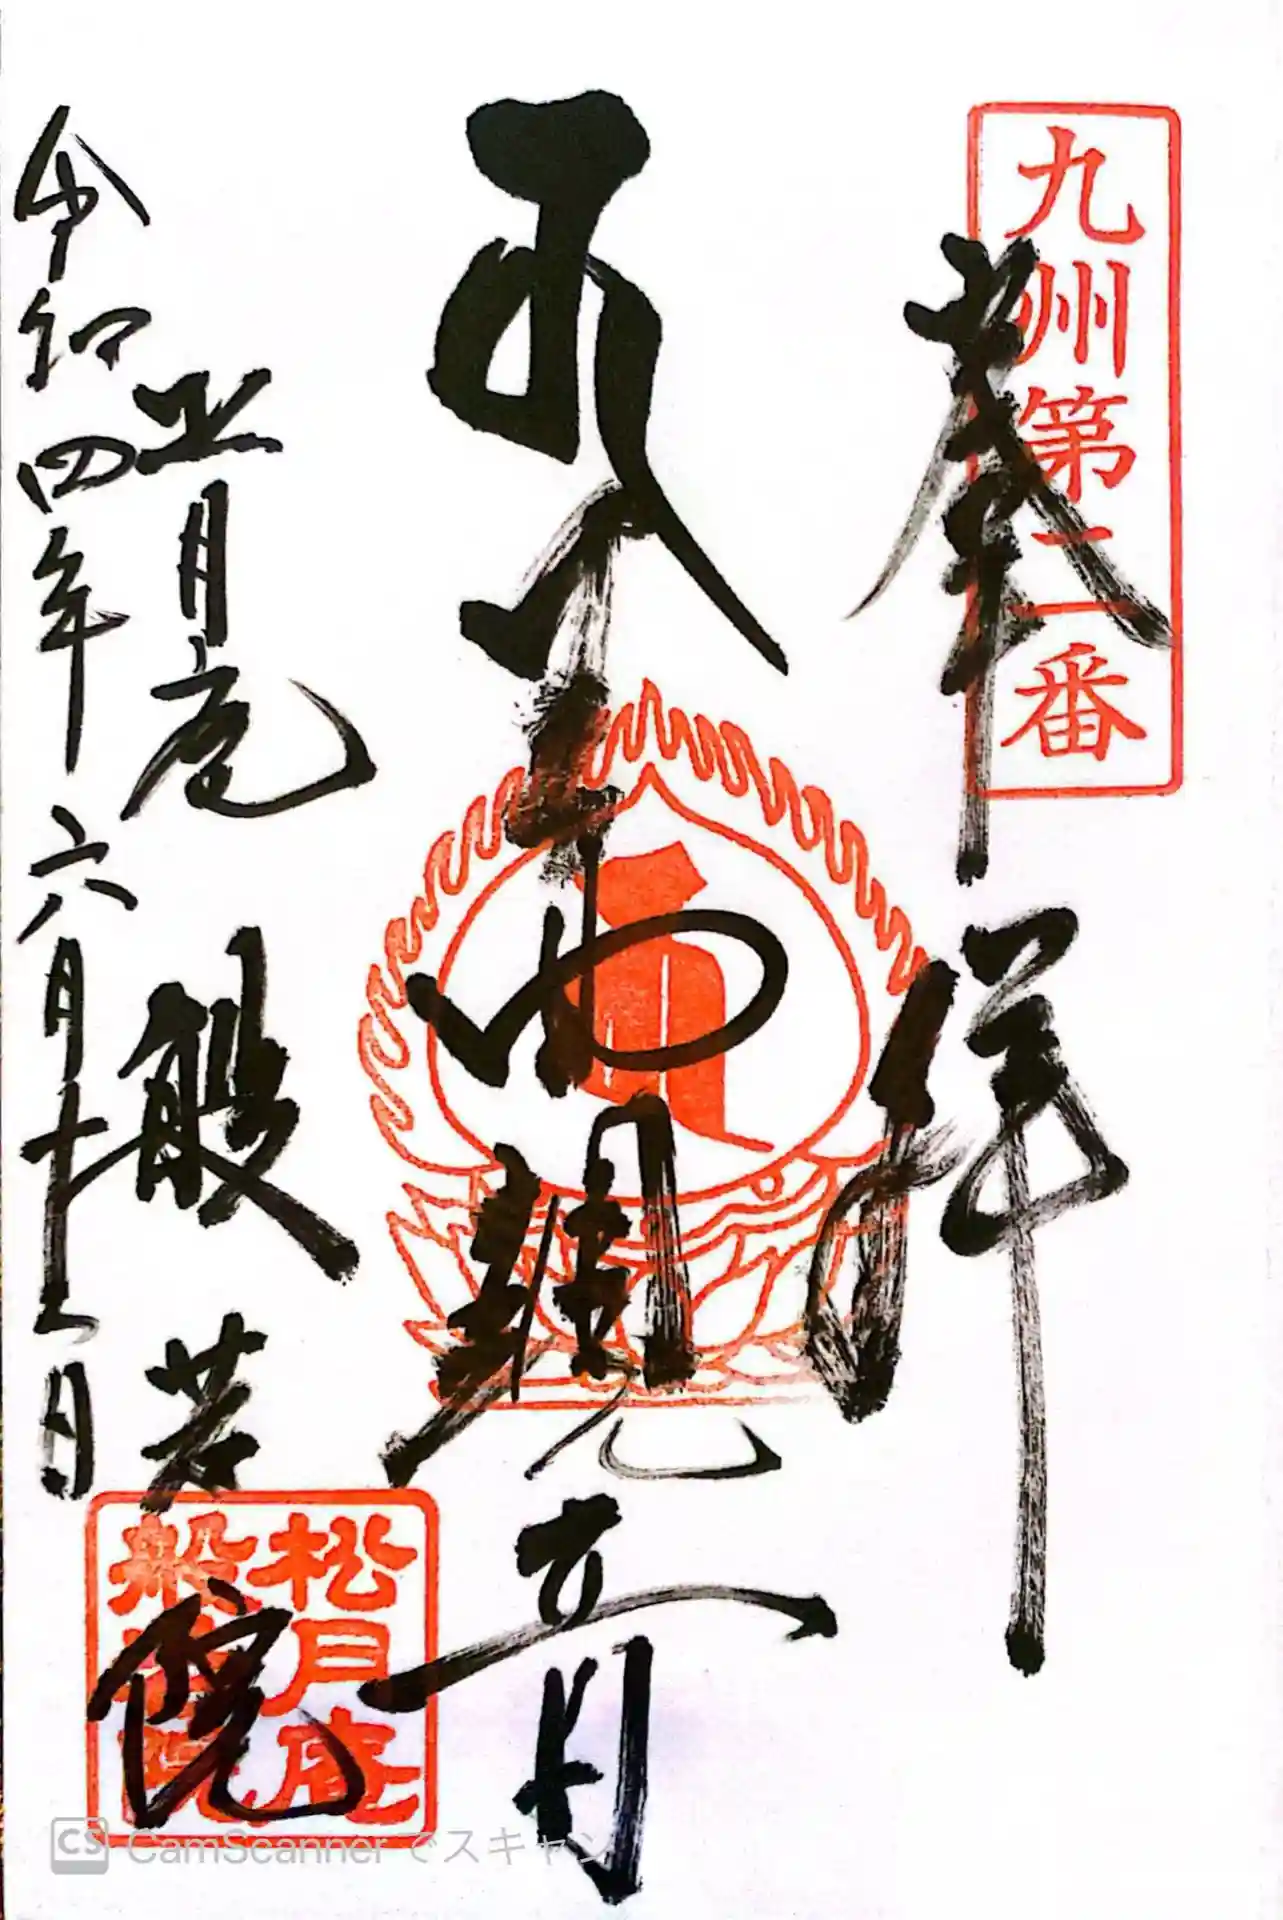 九州第二番
奉拝
観音
正月庵 般若院
令和四年六月十 日
松月庵
般若院
CS CamScanner でスキャン